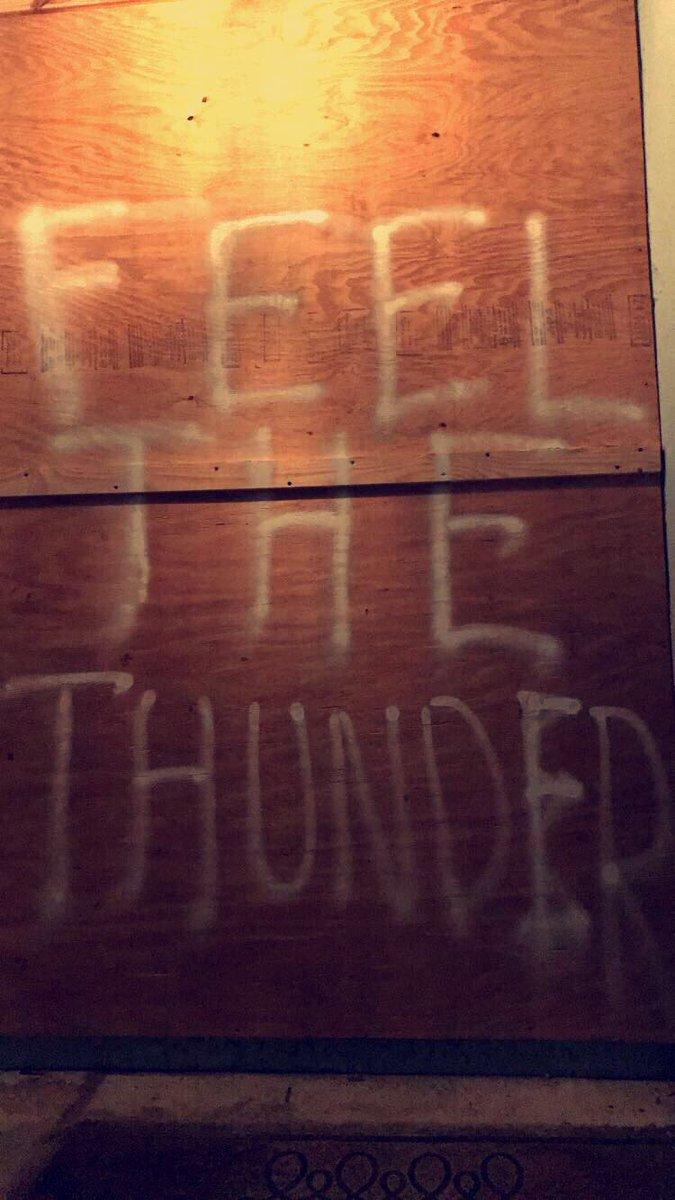 FEEL
THE
THUNDER